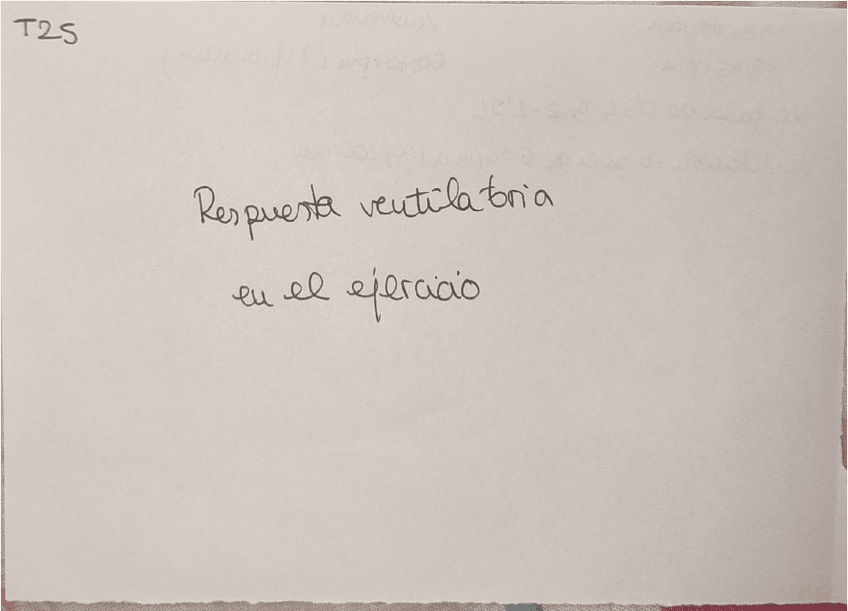 T25
Respuesta ventilatoria
en el ejercicio